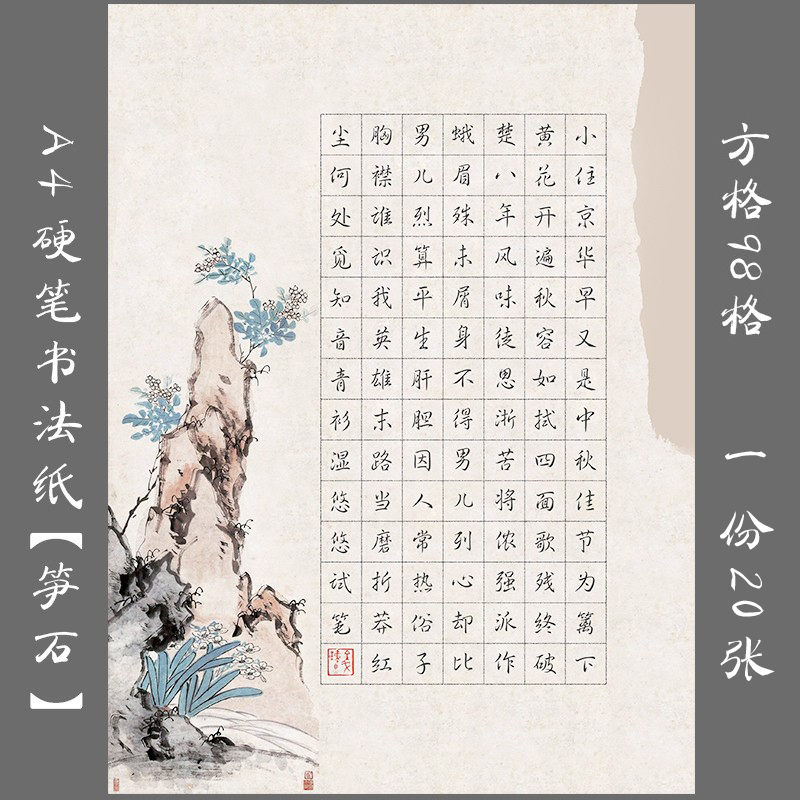 方格98格 一份20张
小住京华早又是中秋佳节为篱下
黄花开遍秋容如拭四面歌残终破
楚八年风味徒思浙苦将侬强派作
蛾眉殊未屑身不得男儿列心却比
男儿烈算平生肝胆因人常热俗子
胸襟谁识我英雄末路当磨折莽红
尘何处觅知音青衫湿悠悠试笔
A4硬笔书法纸【笋石】